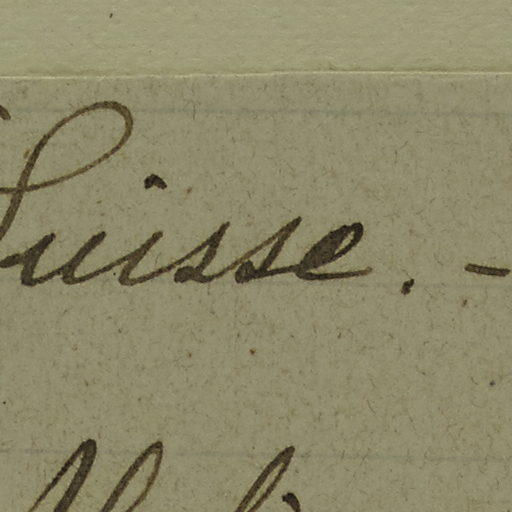 Suisse. -